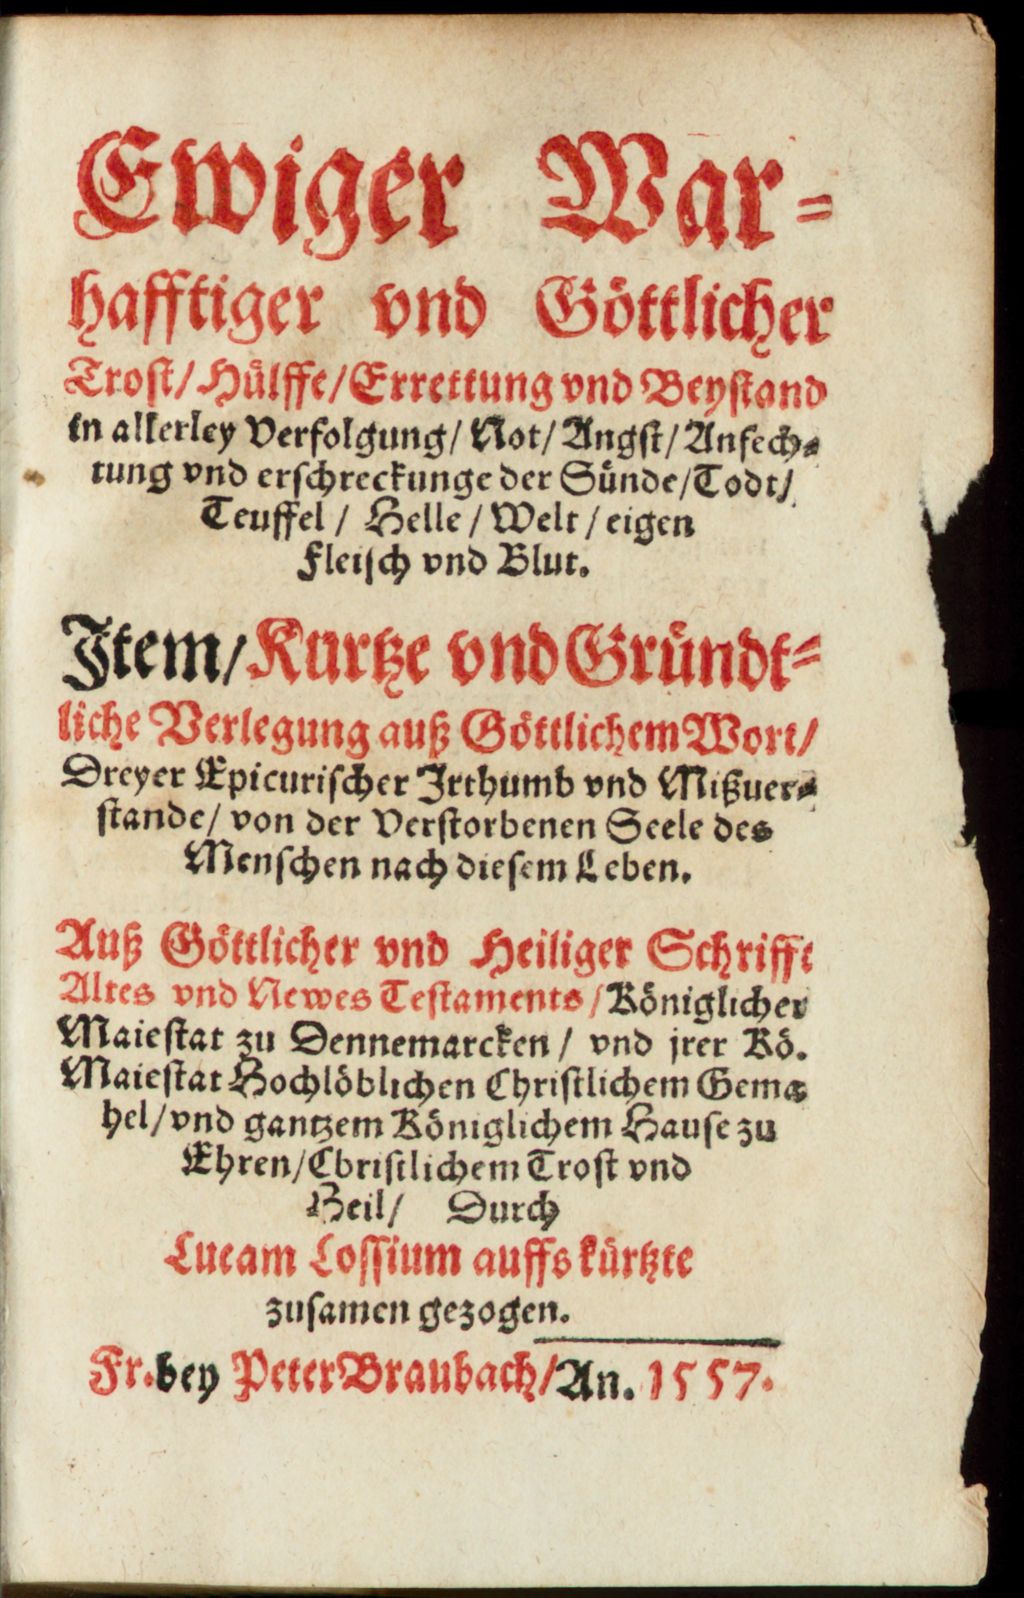 Ewiger War-
hafftiger vnd Göttlicher
Trost/ Hülffe/ Errettung vnd Beystand
in allerley Verfolgung/ Not/ Angst/ Anfech-
tung vnd erschreckunge der Sünde/ Todt/
Teuffel / Helle / Welt / eigen
Fleisch vnd Blut.
Item/ Kurtze vnd Gründt-
liche Verlegung auß Göttlichem Wort/
Dreyer Epicurischer Irthumb vnd Mißuer-
stande/ von der Verstorbenen Seele des
Menschen nach diesem Leben.
Auß Göttlicher vnd Heiliger Schrifft
Altes vnd Newes Testaments / Königlicher
Maiestat zu Dennemarcken / vnd jrer Kö.
Maiestat Hochlöblichen Christlichem Gema-
hel/ vnd gantzem Königlichem Hause zu
Ehren/ Christlichem Trost vnd
Heil/ Durch
Lucam Lossium auffs kürtzte
zusamen gezogen.
Fr. bey Peter Braubach/ An. 1557.